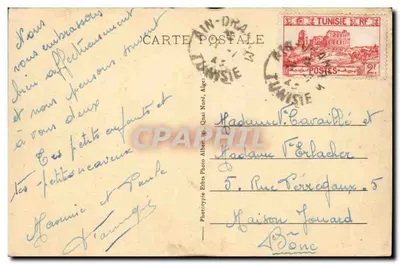 CARTE POSTALE
Nous
vous embrassons
bien affectueusement
et nous pensons souvent
à vous deux
Les petits enfants et
tes petits neveux
Maomie et Paule
AIN-DRAHAM
TUNISIE
TUNISIE RF
POSTES 2F
TUNISIE
CPAPHIL.com
Phototypie Etabts Photo Albert, Quai Nord, Alger
Madame Vve Cavaillé et
Madame Erlacher
5, Rue Perrégaux, 5
Maison Jouard
Bône